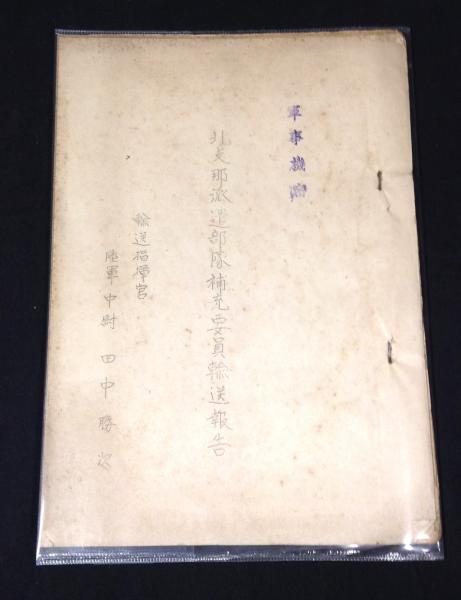 軍事機密
北支那派遣部隊補充要員輸送報告
輸送指揮官
陸軍中尉 田中勝次